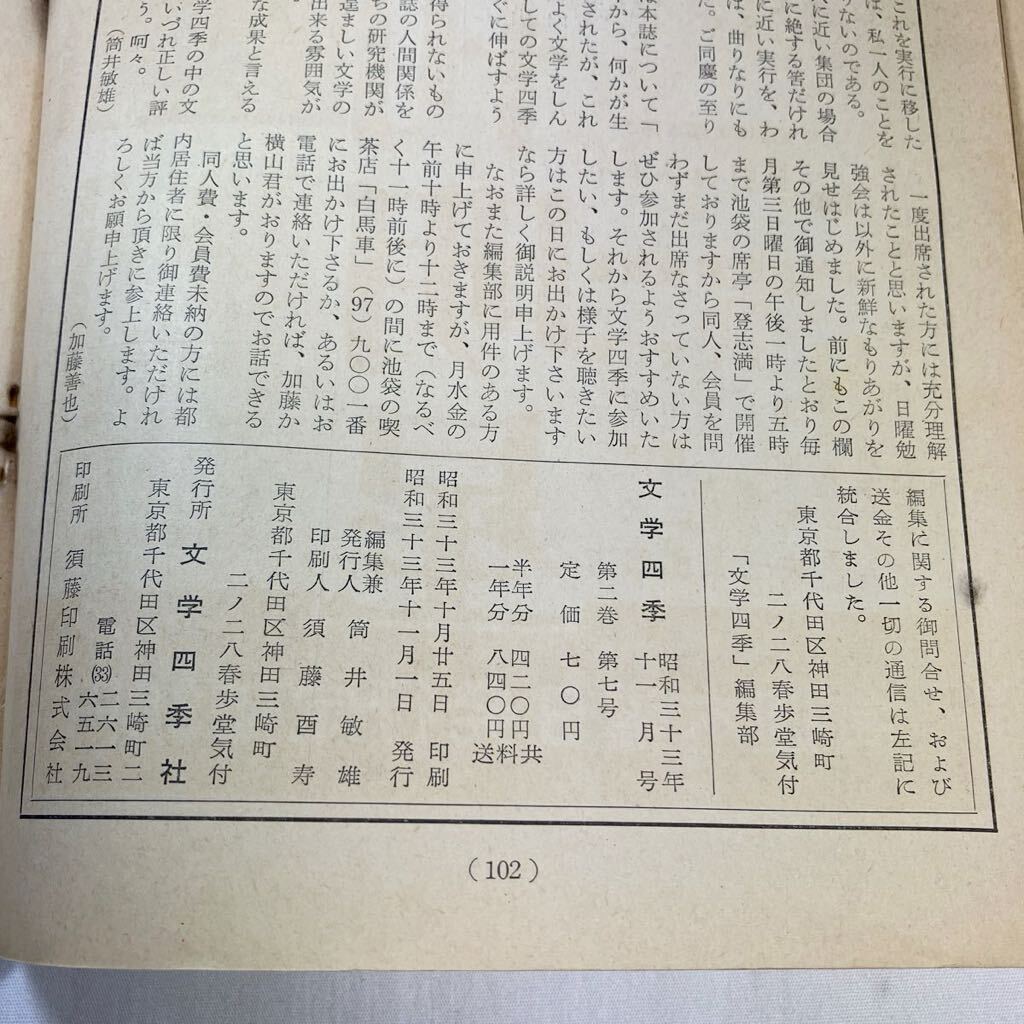 これを実行に移した
は、私一人のことを
りないのである。
に近い集団の場合
に絶する筈だけれ
に近い実行を、わ
は、曲りなりにも
た。ご同慶の至り
は本誌について「
から、何かが生
されたが、これ
よく文学をしん
しての文学四季
ぐに伸ばすよう
得られないもの
誌の人間関係を
ちの研究機関が
逞ましい文学の
出来る雰囲気が
な成果と言える
学四季の中の文
いづれ正しい評
う。呵々。
（筒井敏雄）
一度出席された方には充分理解
されたことと思いますが、日曜勉
強会は以外に新鮮なもりあがりを
見せはじめました。前にもこの欄
その他で御通知しましたとおり毎
月第三日曜日の午後一時より五時
まで池袋の席亭「登志満」で開催
しておりますから同人、会員を問
わずまだ出席なさっていない方は
ぜひ参加されるようおすすめいた
します。それから文学四季に参加
したい、もしくは様子を聴きたい
方はこの日にお出かけ下さいます
なら詳しく御説明申上げます。
なおまた編集部に用件のある方
に申上げておきますが、月水金の
午前十時より十二時まで（なるべ
く十一時前後に）の間に池袋の喫
茶店「白馬車」（97）九〇〇一番
にお出かけ下さるか、あるいはお
電話で連絡いただければ、加藤か
横山君がおりますのでお話できる
と思います。
同人費・会員費未納の方には都
内居住者に限り御連絡いただけれ
ば当方から頂きに参上します。よ
ろしくお願申上げます。
（加藤善也）
編集に関する御問合せ、および
送金その他一切の通信は左記に
統合しました。
東京都千代田区神田三崎町
二ノ二八春歩堂気付
「文学四季」編集部
文学四季 昭和三十三年十一月号
第二巻 第七号
定価 七〇円
半年分 四二〇円
一年分 八四〇円
送料共
昭和三十三年十月廿五日 印刷
昭和三十三年十一月一日 発行
編集兼
発行人 筒井敏雄
印刷人 須藤酉寿
東京都千代田区神田三崎町
二ノ二八春歩堂気付
発行所 文学四季社
東京都千代田区神田三崎町二
電話(33)二六一三
六五一九
印刷所 須藤印刷株式会社
（102）